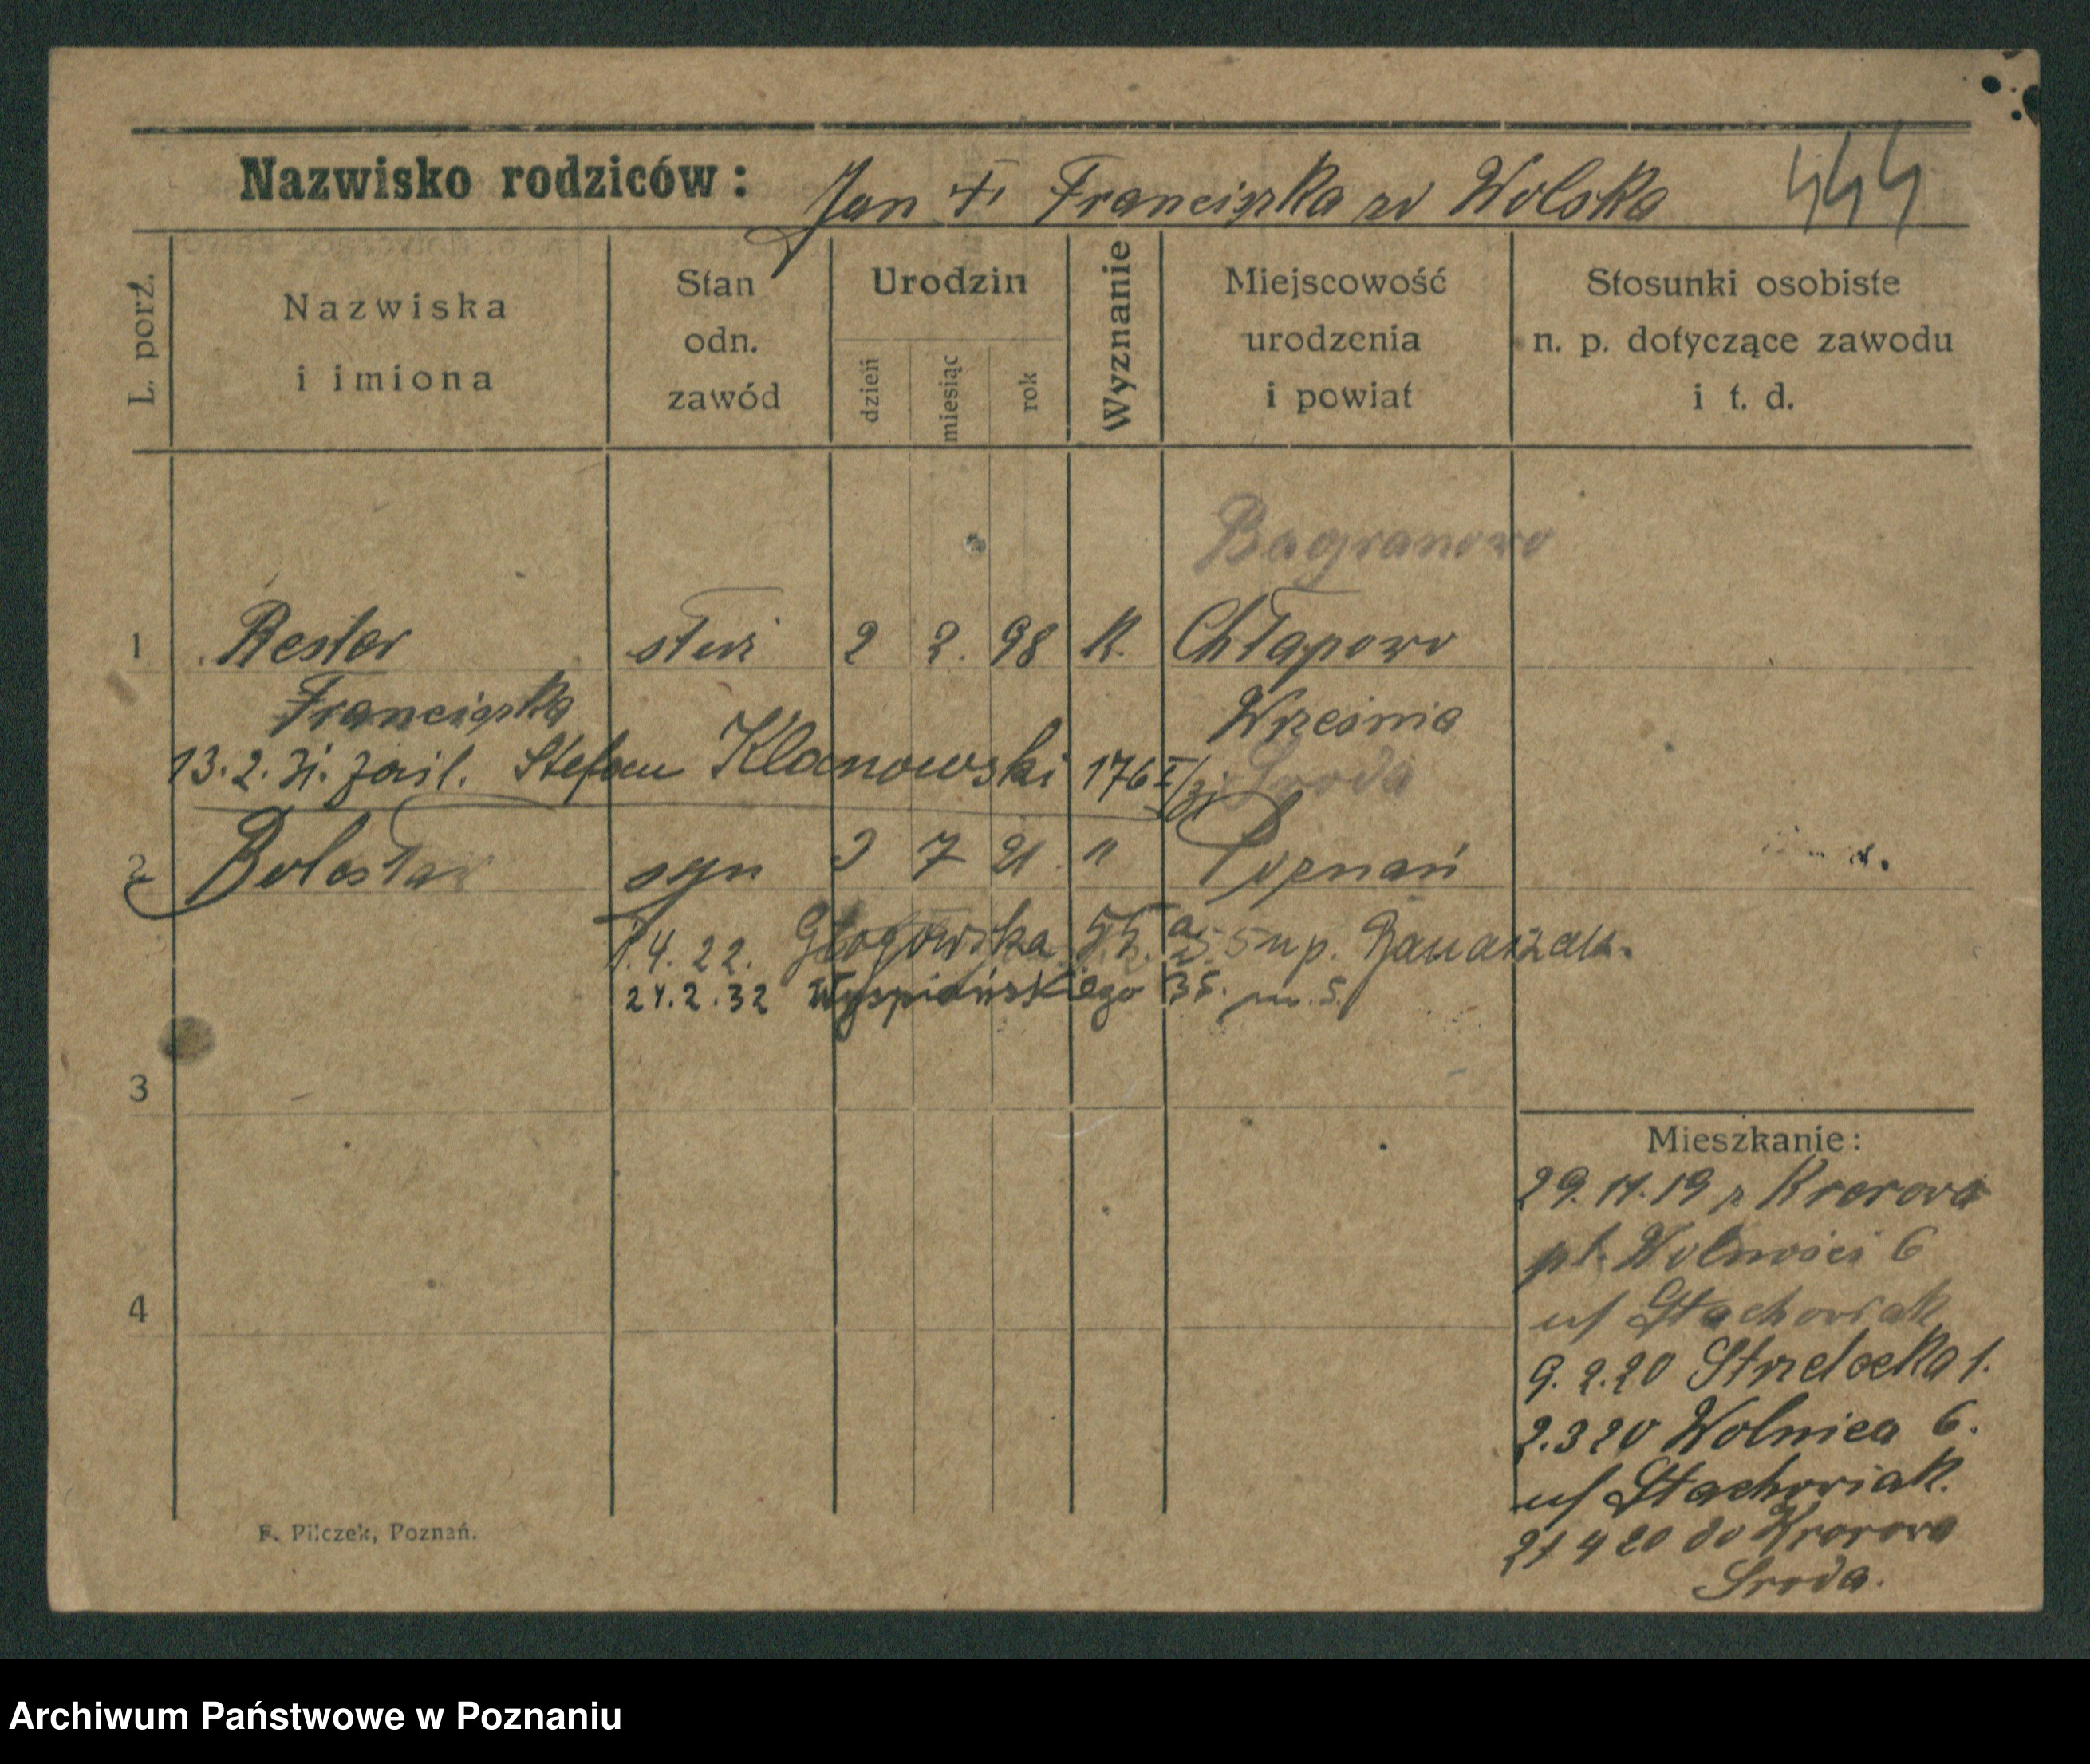 Nazwisko rodziców: Jan + Franciszka zd Wolska 444
L. porz.
Nazwiska i imiona
Stan odn. zawód
Urodzin
dzień miesiąc rok
Wyznanie
Miejscowość urodzenia i powiat
Stosunki osobiste n. p. dotyczące zawodu i t. d.
Bagranowo
1 Rester służ 2 2. 98 K. Chłapowo
Franciszka Września
13.2.31. zaśl. Stefan Klanowski 176 I/31 Środa
2 Bolesław syn 3 7 21 " Poznań
4. 22. Głogowska
24.2.32 Wyspiańskiego 35. m. 5.
3
4
Mieszkanie:
29.11.19 z Krerowa
pl. Wolności 6
u/ Stachowiak
9.2.20 Strzelecka 1.
2.3 20 Wolnica 6.
u/ Stachowiak.
21 4 20 do Krerowa
Środa.
F. Pilczek, Poznań.
Archiwum Państwowe w Poznaniu